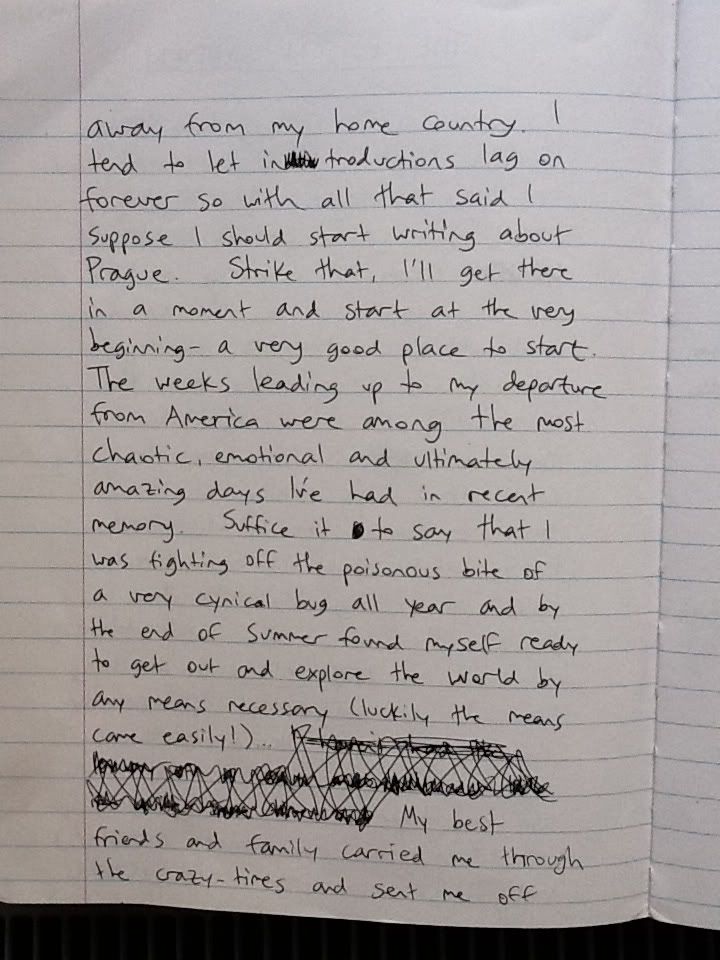 away from my home country. I
tend to let introductions lag on
forever so with all that said I
suppose I should start writing about
Prague. Strike that, I'll get there
in a moment and start at the very
beginning- a very good place to start.
The weeks leading up to my departure
from America were among the most
chaotic, emotional and ultimately
amazing days I've had in recent
memory. Suffice it to say that I
was fighting off the poisonous bite of
a very cynical bug all year and by
the end of Summer found myself ready
to get out and explore the world by
any means necessary (luckily the means
came easily!)..
My best
friends and family carried me through
the crazy-tires and sent me off